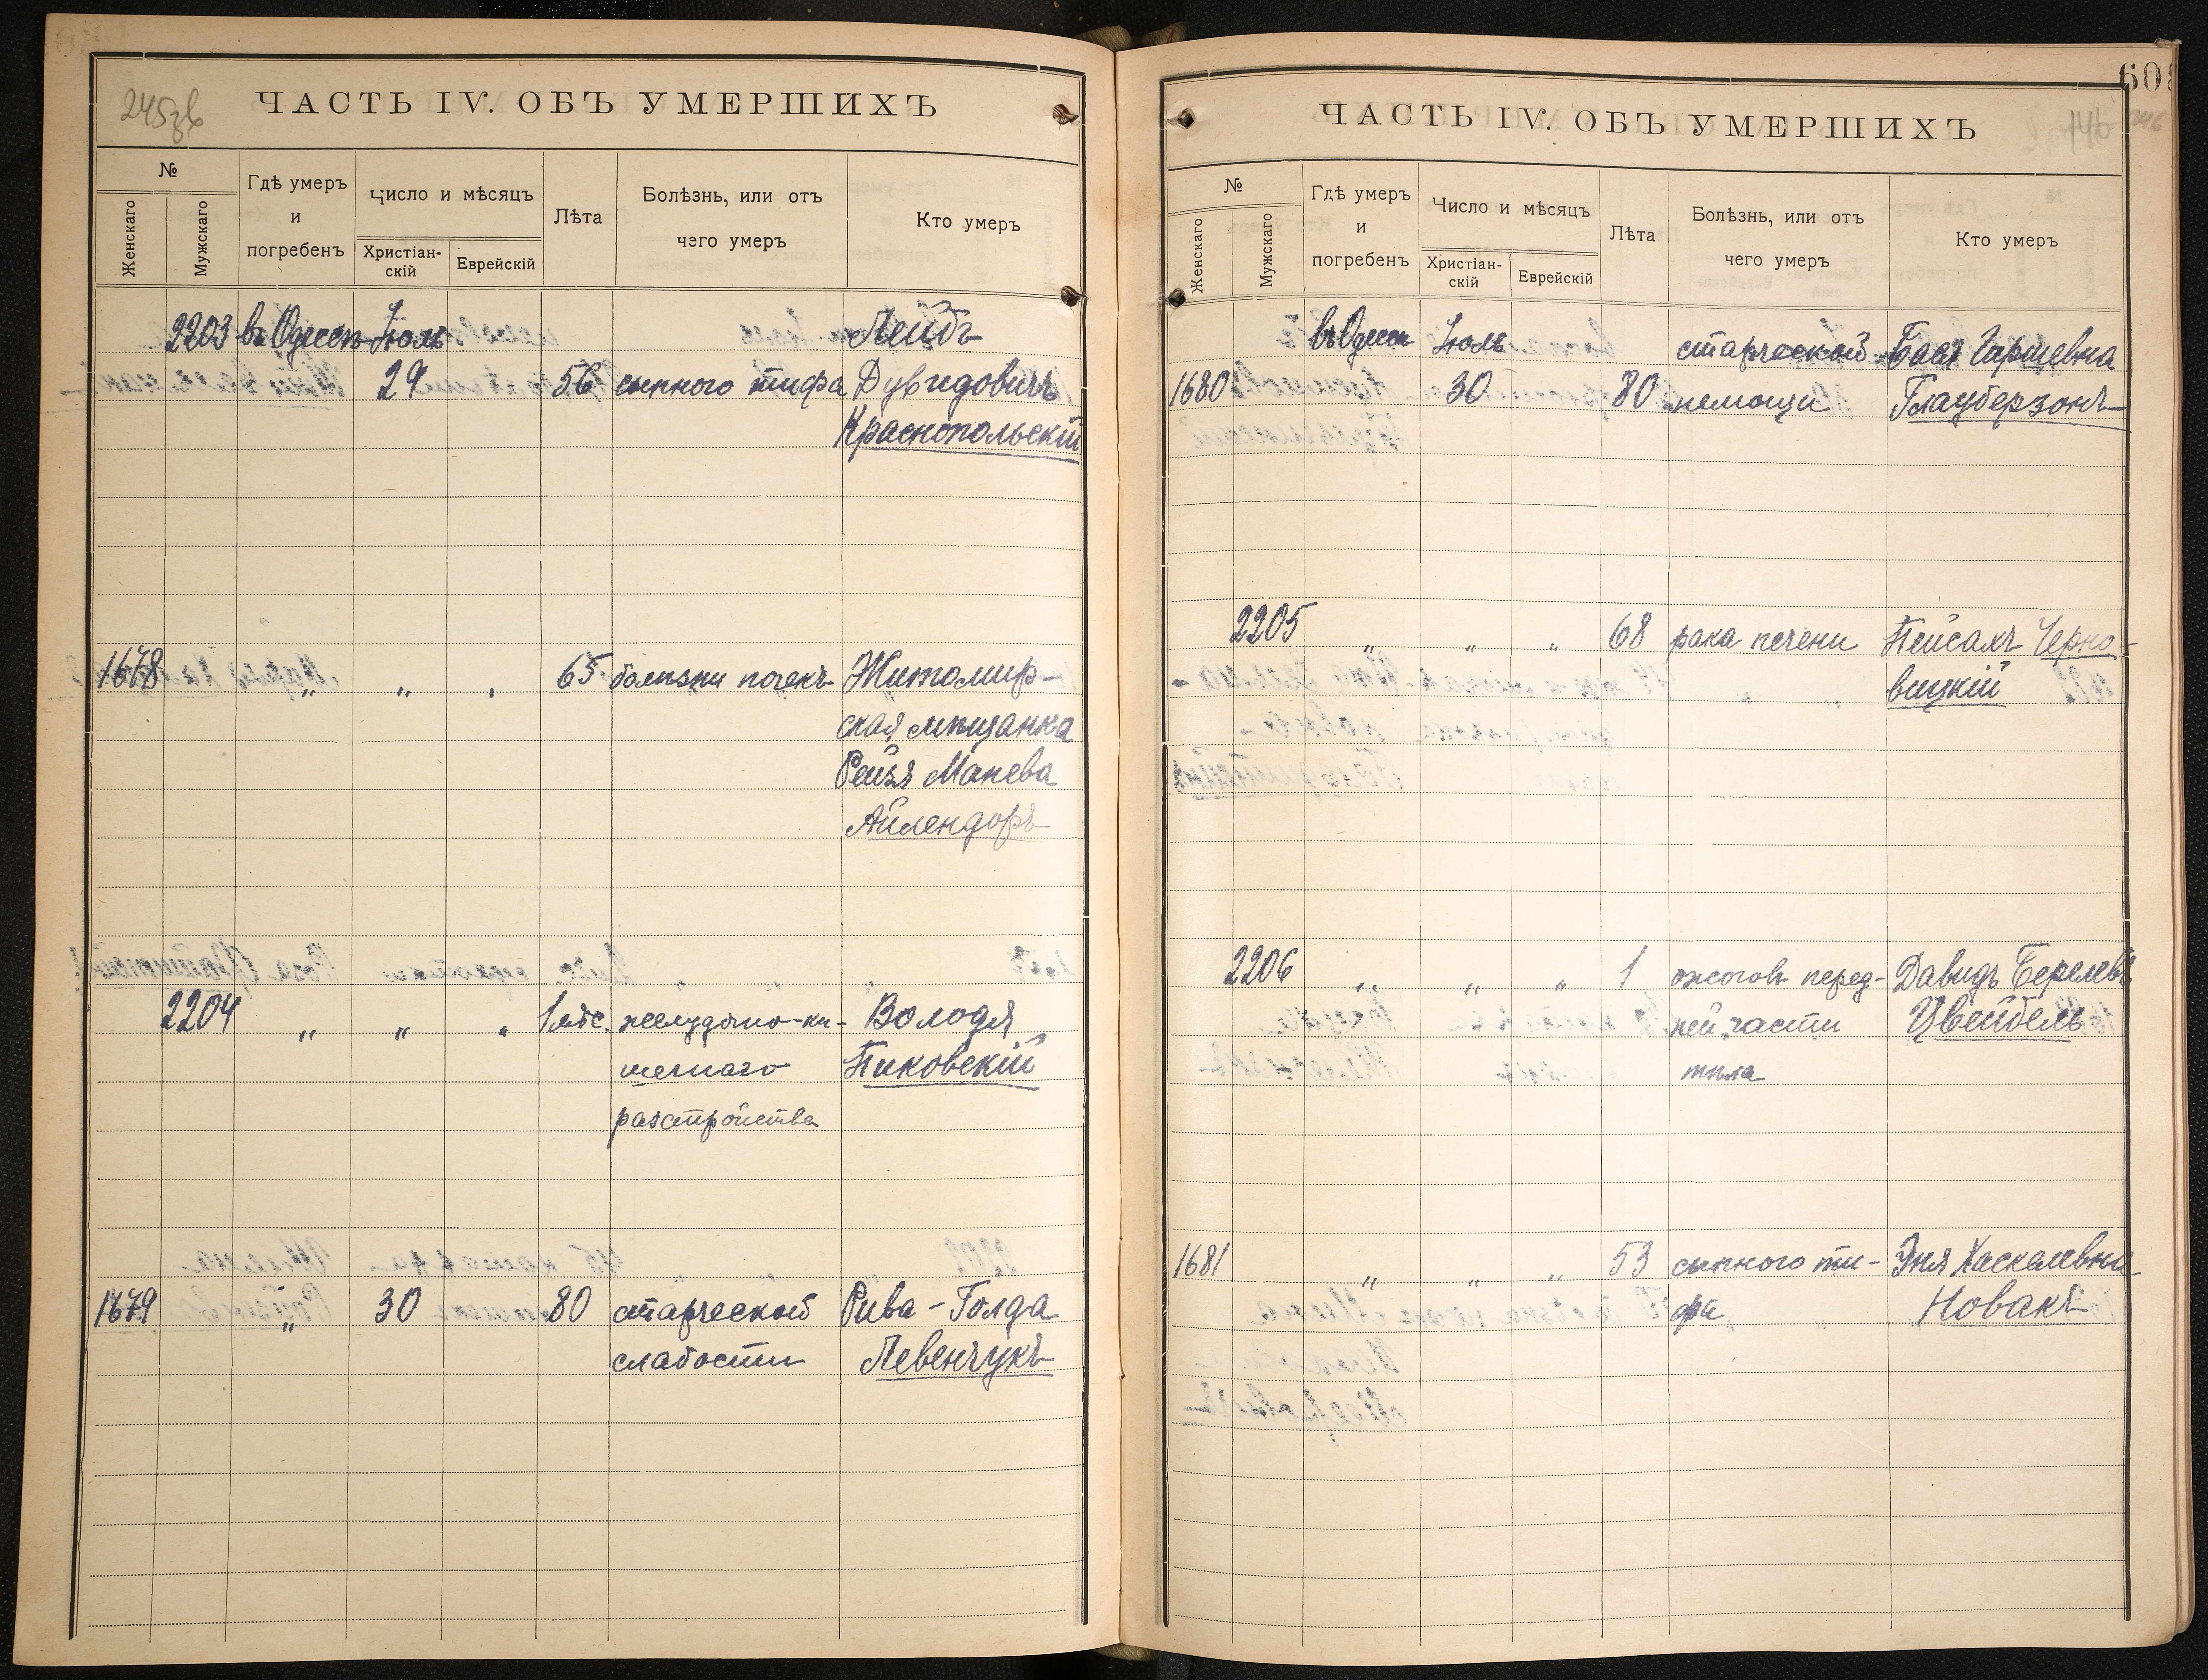 245зв
ЧАСТЬ IV. ОБЪ УМЕРШИХЪ
№
Женскаго
Мужскаго
Гдѣ умеръ
и
погребенъ
Число и мѣсяцъ
Христіан-
скій
Еврейскій
Лѣта
Болѣзнь, или отъ
чего умеръ
Кто умеръ
2203 въ Одессѣ Іюль Лейбъ
29 56 сыпного тифа Дувидовичъ
Краснопольскій
1678 „ „ „ 65 болѣзни почекъ Житомир-
ская мѣщанка
Рейзя Манева
Айлендоръ
2204 „ „ „ 1 мѣс. желудочно-ки- Володя
шечнаго Пиковскій
разстройства
1679 „ 30 80 старческой Рива-Голда
слабости Левенчукъ
ЧАСТЬ IV. ОБЪ УМЕРШИХЪ
146
№
Женскаго
Мужскаго
Гдѣ умеръ
и
погребенъ
Число и мѣсяцъ
Христіан-
скій
Еврейскій
Лѣта
Болѣзнь, или отъ
чего умеръ
Кто умеръ
въ Одессѣ Іюль старческой Бася Гаршевна
1680 30 80 немощи Глауберзонъ
2205 „ „ „ 68 рака печени Пейсахъ Черно-
вицкій
2206 „ „ „ 1 ожоговъ перед- Давидъ Берелевъ
ней части Цвейбель
тѣла
1681 „ „ „ 53 сыпного ти- Эня Хаскелевна
фа Новакъ